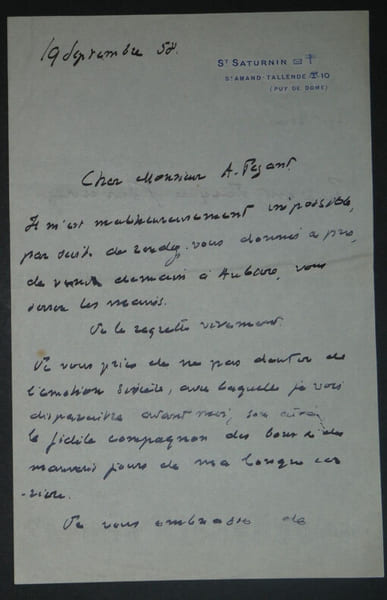 19 Septembre 58.
ST SATURNIN
ST AMAND-TALLENDE 10
(PUY DE DOME)
Cher Monsieur A.
Il m'est malheureusement impossible,
par suite de rendez-vous donnés à
de venir demain à vous
serrer les mains.
Je le regrette vivement.
Je vous prie de ne pas douter de
l'émotion avec laquelle je vois
disparaître avant moi,
le fidèle compagnon des bons & des
mauvais jours de ma longue car
-rière.
Je vous embrasse de